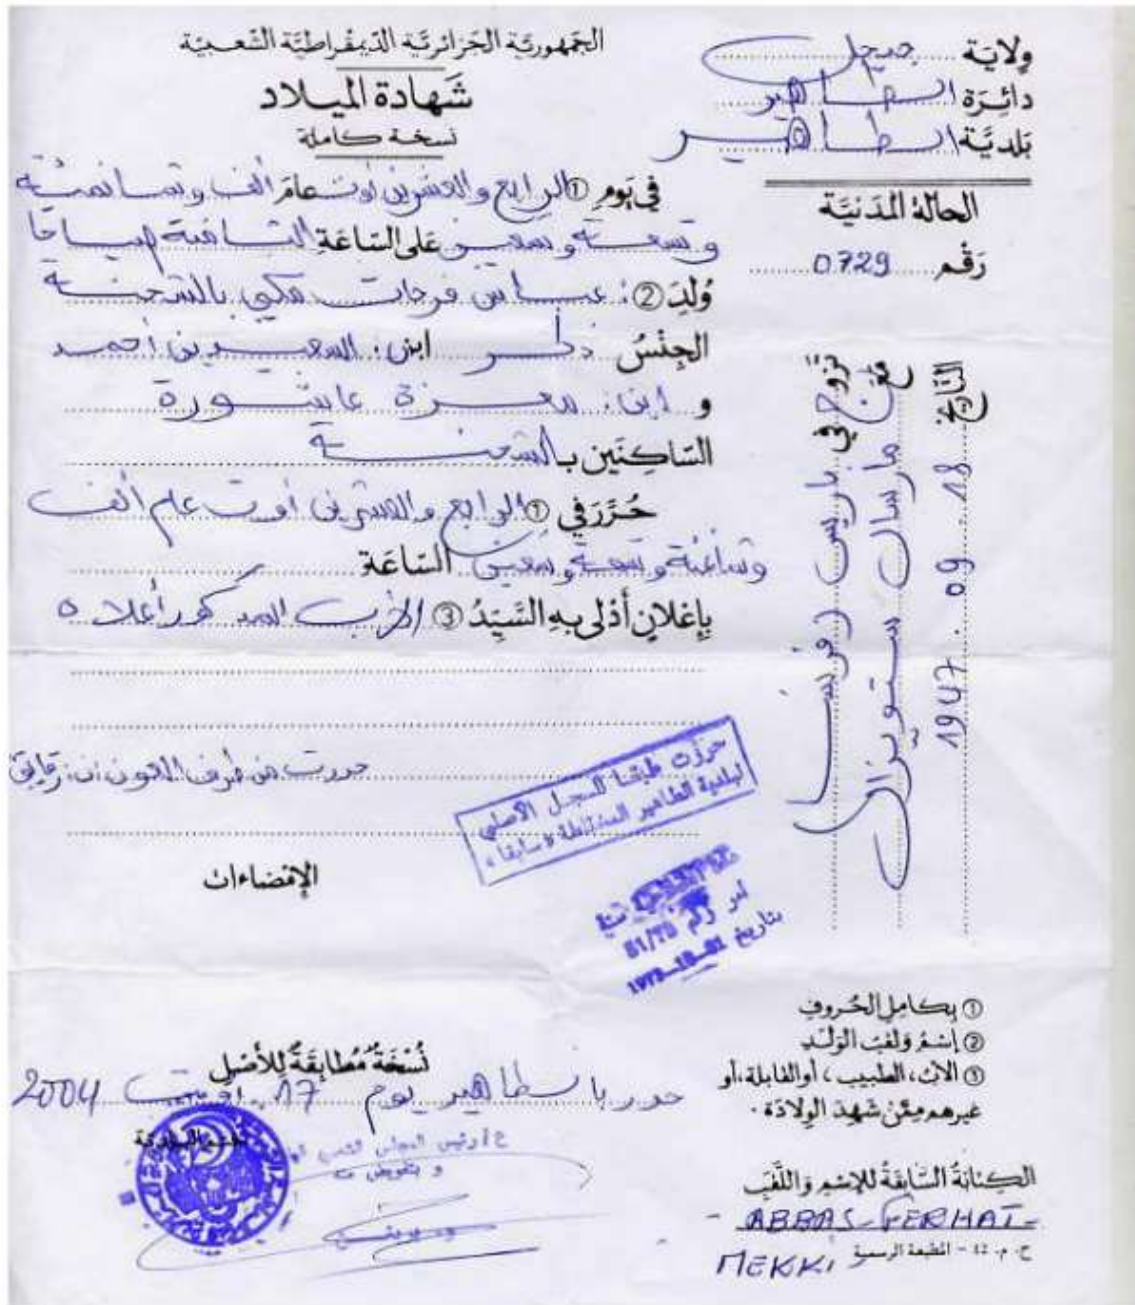 الجمهورية الجزائرية الديمقراطية الشعبية
شهادة الميلاد
نسخة كاملة
ولاية جيجل
دائرة الطاهير
بلدية الطاهير
الحالة المدنية
رقم 0729
في يوم ① الرابع والعشرين أوت عام ألف وثمانمئة
وتسعة وتسعين على الساعة الثامنة صباحا
ولد ②: عباس فرحات مكي بالشحنة
الجنس ذكر ابن: السعيد بن أحمد
و ابن: معزة عاشورة
الساكنين بالشحنة
حرر في ① الرابع والعشرين أوت عام ألف
وثمانمئة وتسعة وتسعين الساعة
بإعلان أدلى به السيد ③ الأب المذكور أعلاه
حررت من طرف العون
حررت طبقا للسجل الأصلي
لبلدية الطاهير المختلطة «سابقا»
أمر رقم 51/75
بتاريخ
الإمضاءات
تزوج في باريس (فرنسا)
مع مارسال ستويزال
التاريخ 1947.09.18
① بكامل الحروف
② إسم ولقب الولد
① الأب، الطبيب، أو القابلة، أو
غيرهم ممن شهد الولادة.
نسخة مطابقة للأصل
حرر بالطاهير يوم 17 أوت 2004
ع/رئيس المجلس الشعبي
و بتفويض منه
الكتابة السابقة للإسم واللقب
- ABBAS-FERHAT-
MEKKI
ح. م. 42 - المطبعة الرسمية